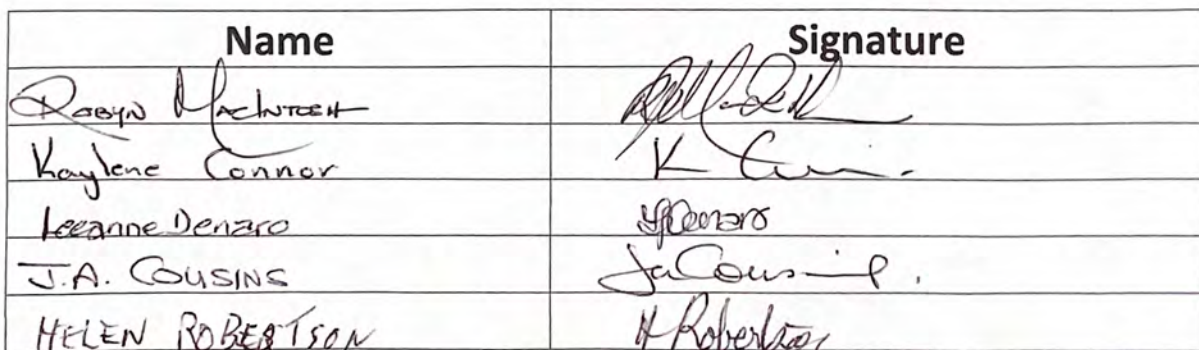 Name Signature
Robyn MacIntosh
Kaylene Connor K
Leeanne Denaro Denaro
J.A. COUSINS JaCousins.
HELEN ROBERTSON H Robertson